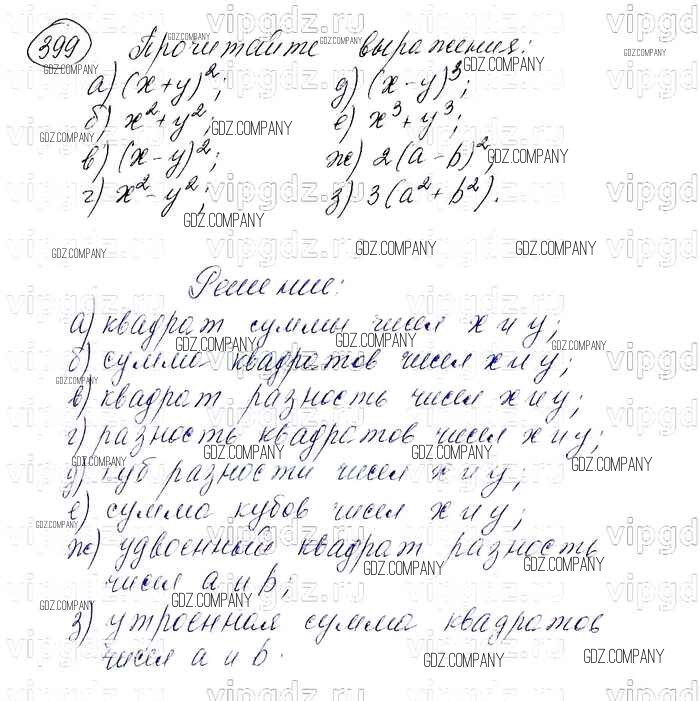 399 Прочитайте выражения:
а) (x+y)²; д) (x-y)³;
б) x²+y²; е) x³+y³;
в) (x-y)²; ж) 2(a-b)²;
г) x²-y²; з) 3(a²+b²).
Решение:
а) квадрат суммы чисел x и y;
б) сумма квадратов чисел x и y;
в) квадрат разность чисел x и y;
г) разность квадратов чисел x и y;
д) куб разности чисел x и y;
е) сумма кубов чисел x и y;
ж) удвоенный квадрат разность
чисел a и b;
з) утроенная сумма квадратов
чисел a и b.
GDZ.COMPANY
vipgdz.ru